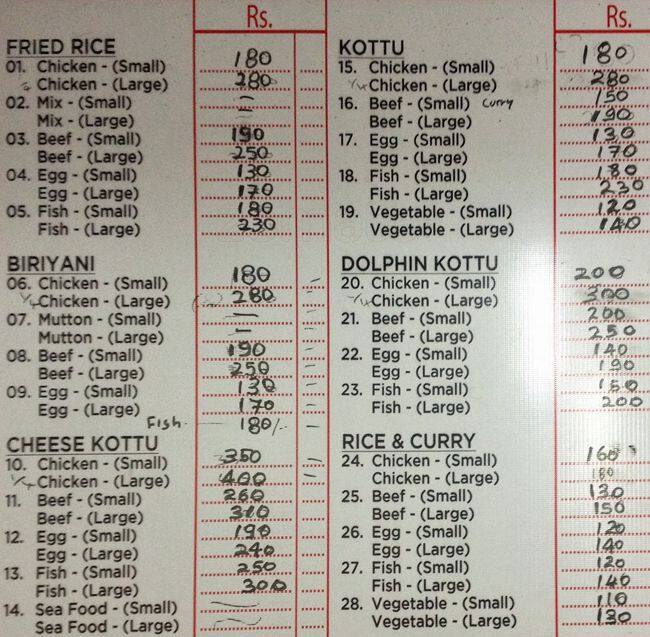 Rs.
FRIED RICE
01. Chicken - (Small) 180
Chicken - (Large) 280
02. Mix - (Small) -
Mix - (Large) -
03. Beef - (Small) 190
Beef - (Large) 250
04. Egg - (Small) 130
Egg - (Large) 170
05. Fish - (Small) 180
Fish - (Large) 230
BIRIYANI
06. Chicken - (Small) 180 -
Chicken - (Large) 280 -
07. Mutton - (Small) - -
Mutton - (Large) - -
08. Beef - (Small) 190 -
Beef - (Large) 250 -
09. Egg - (Small) 130 -
Egg - (Large) 170 -
Fish - 180/- -
CHEESE KOTTU
10. Chicken - (Small) 350 -
Chicken - (Large) 400 -
11. Beef - (Small) 260
Beef - (Large) 310
12. Egg - (Small) 190
Egg - (Large) 240
13. Fish - (Small) 250
Fish - (Large) 300
14. Sea Food - (Small)
Sea Food - (Large)
Rs.
KOTTU
15. Chicken - (Small) 180
Chicken - (Large) 280
16. Beef - (Small) Curry 150
Beef - (Large) 190
17. Egg - (Small) 130
Egg - (Large) 170
18. Fish - (Small) 180
Fish - (Large) 230
19. Vegetable - (Small) 120
Vegetable - (Large) 140
DOLPHIN KOTTU
20. Chicken - (Small) 200
Chicken - (Large) 300
21. Beef - (Small) 200
Beef - (Large) 250
22. Egg - (Small) 140
Egg - (Large) 190
23. Fish - (Small) 150
Fish - (Large) 200
RICE & CURRY
24. Chicken - (Small) 160
Chicken - (Large) 180
25. Beef - (Small) 130
Beef - (Large) 150
26. Egg - (Small) 120
Egg - (Large) 140
27. Fish - (Small) 120
Fish - (Large) 140
28. Vegetable - (Small) 110
Vegetable - (Large) 130